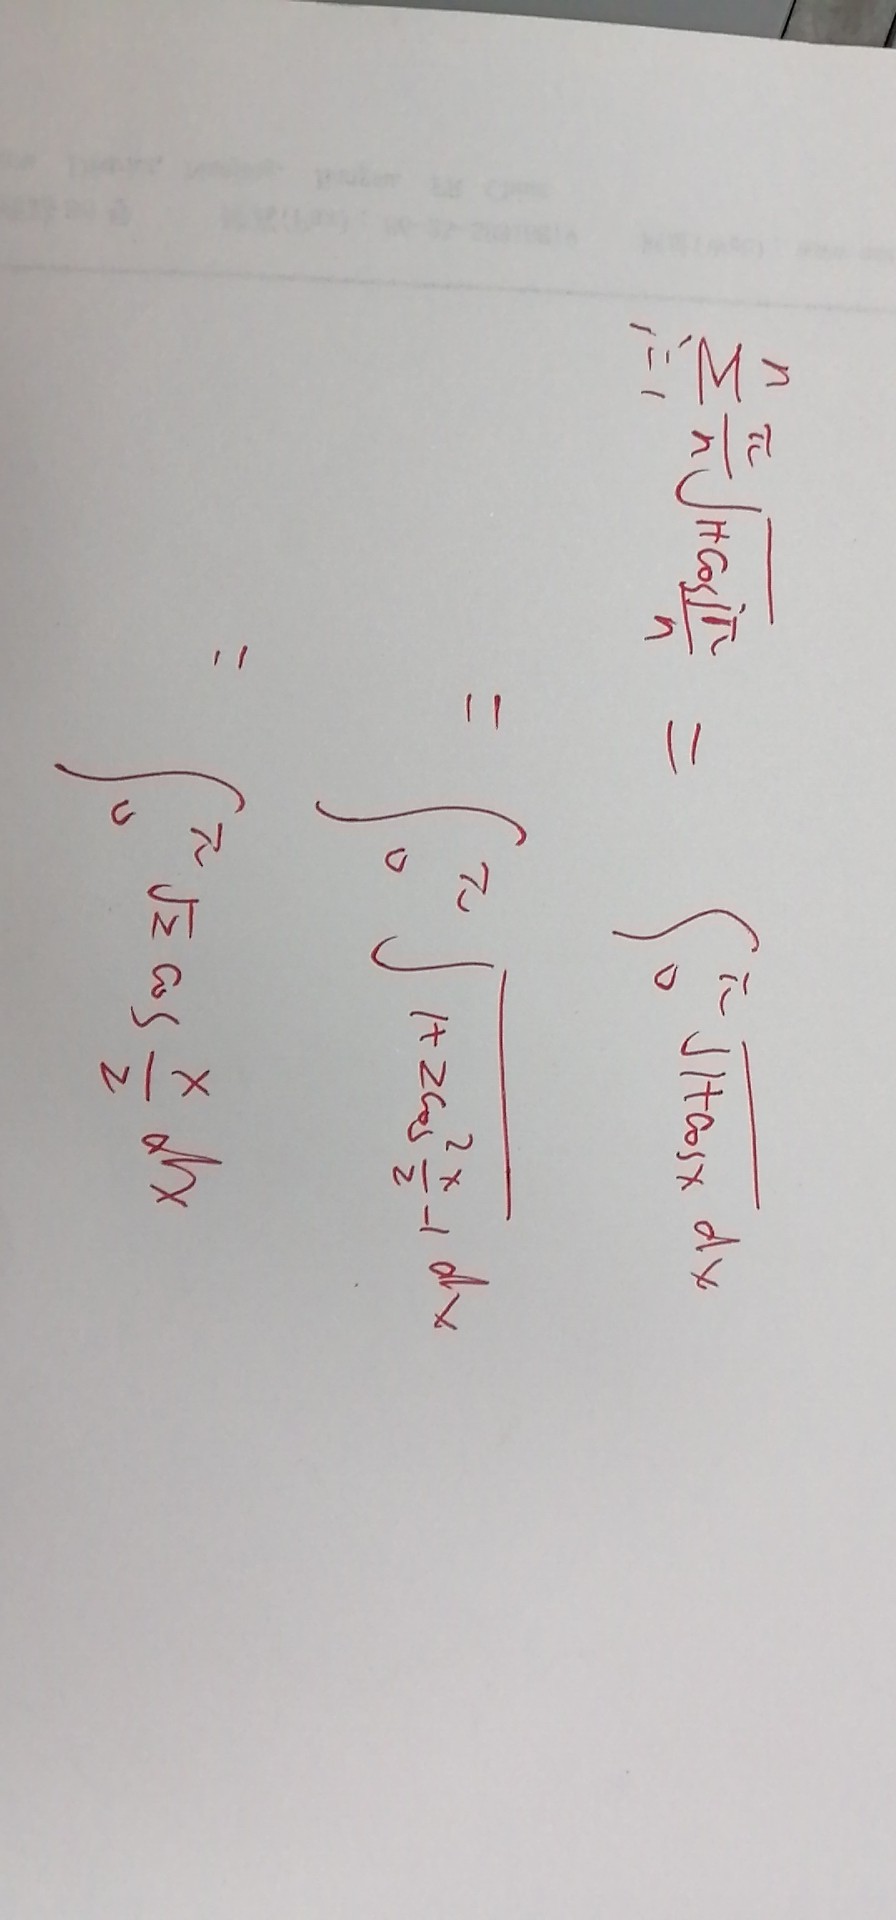 $\sum_{i=1}^{n} \frac{\pi}{n} \sqrt{1+\cos\frac{i\pi}{n}} = \int_0^{\pi} \sqrt{1+\cos x} \, dx$
$= \int_0^{\pi} \sqrt{1+2\cos^2\frac{x}{2}-1} \, dx$
$= \int_0^{\pi} \sqrt{2} \cos\frac{x}{2} \, dx$